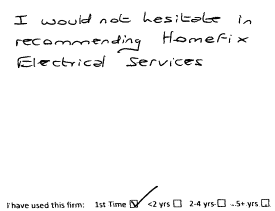 I would not hesitate in
recommending HomeFix
Electrical Services
I have used this firm: 1st Time ☑ <2 yrs ☐ 2-4 yrs ☐ ..5+ yrs ☐